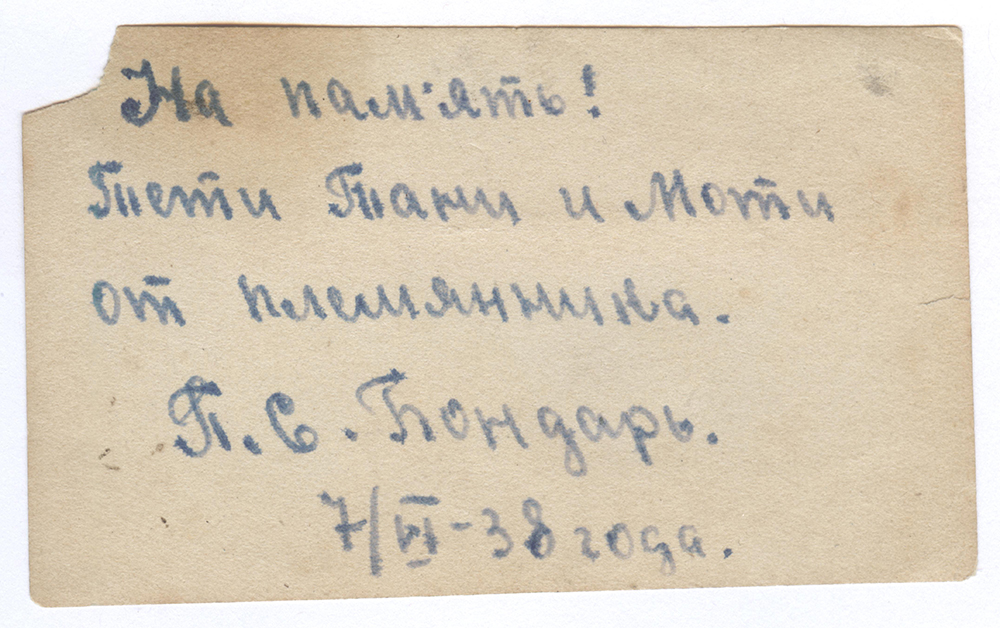 На пам'ять!
Тети Тани и Моти
от племянника.
П.С. Бондарь.
7/VI-38 года.